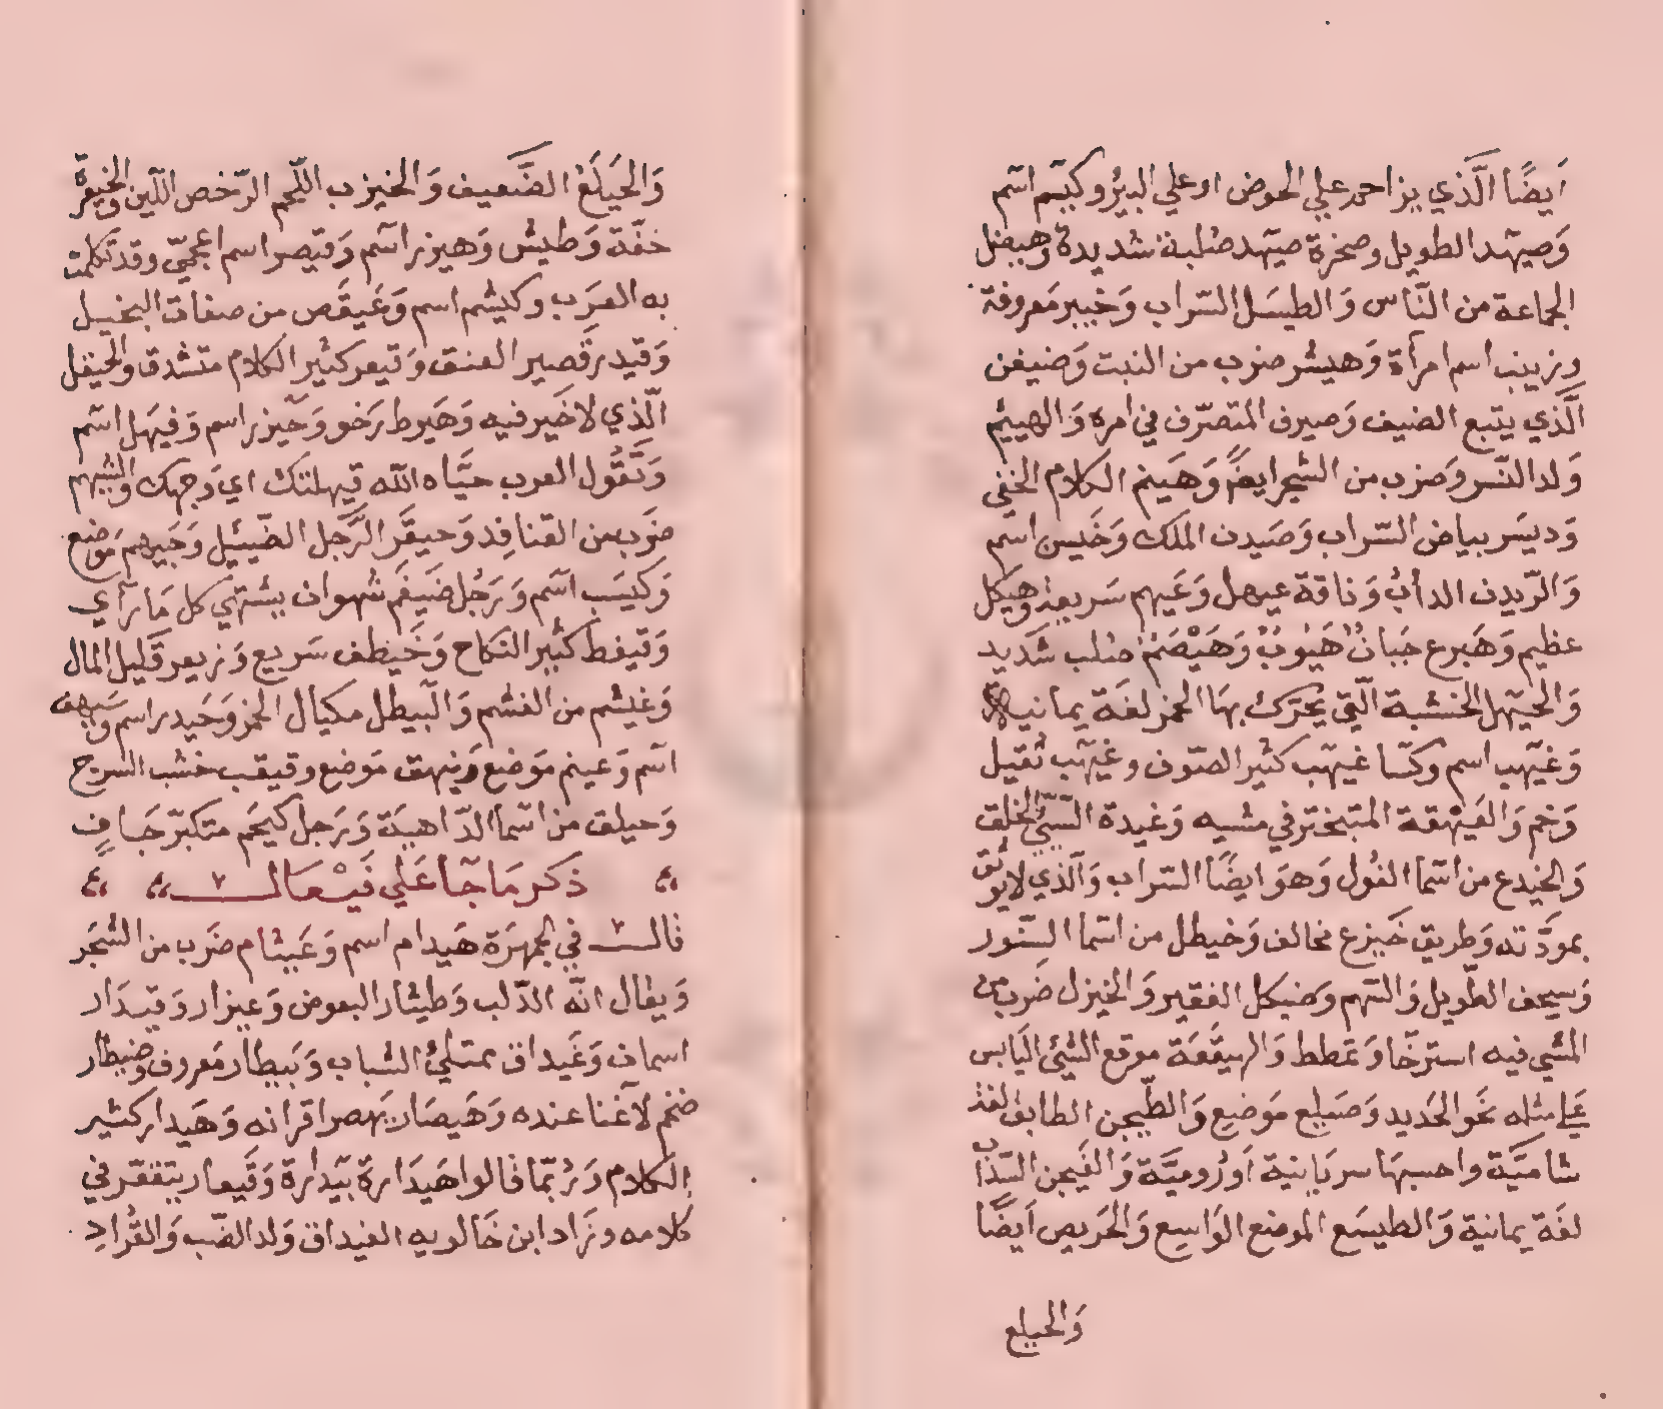 اَيضًا الَّذي يزاحم علي الحوض او علي البير وكيسم اسم
وَصيهد الطويل وصخرة صيهد صلبة شديدة وهيضل
الجماعة من النّاس وَالطيسَل السّراب وَخيبر مَعروفة
وزينب اسم امرأة وَهيشر ضرب من النبت وَضيفن
الَّذي يتبع الضيف وَصيرف المتصرّف في امره وَالهيثم
وَلد النّسر وَضرب من الشجر ايضًا وَهَينم الكلام الخفي
وَديسَر بياض السّراب وَصَيدن الملك وَخَيسن اسم
وَالرّيدن الدأب وَناقة عيهل وَعَيهم سَريعة وهيكل
عظيم وَهَيرع جَبان هَيوب وَهَيْصَم صلب شَديد
وَالحيهل الخشبة الّتي يحرّك بهَا الخمر لغَة يمانية
وَغَيهب اسم وكسا غيهَب كثير الصّوف وغيهَب ثقيل
وَخم وَالفَيْهقة المتبختر في مشيه وَغيدة السّيّئ الخلق
وَالخيدع من اسَما الغُول وَهوَ ايضًا السّراب وَالّذي لا يوثق
بمودّته وَطريق خَيزع مخالف وَخيطل من اسَما السّنور
وَسيحف الطّويل وَالسّهم وَضيكل الفقير وَالخيزل ضَرب من
المشي فيه استرخَا وَتمطط وَالهيقَعَة موقع الشّئ اليَابس
عَلي مثله نحو الحَديد وَصَيلع مَوضع وَالطّيجن الطابق لغة
شاميَّة واحسبهَا سريَانية اَو رُوميَّة وَالفَيجن السّذاب
لغَة يمانية وَالطيسَع الموضع الوَاسِع وَالحَريص اَيضًا
وَالخيلع
وَالخيَلَع الضَّعيف وَالخيزب اللّحم الرّخص اللّين والخيعرة
خفّة وَطيش وَهيزر اسم وَقيصر اسم اعجميّ وقد تكلمت
به العرَب وكيشم اسم وَعَيقَص من صفات البخيل
وَقيدر قَصير العنق وَقيعر كثير الكلام متشدق والخيقل
الّذي لا خَير فيه وَهَيرط رَخو وَحَيزر اسم وَفيهَل اسم
وَتَقُول العرب حيَّاه الله قيهلتك اي وَجهك والشيهم
ضَرب من القنافِد وَحيقَر الرَّجل الضّئيل وَجَيهم مَوضع
وَكيسَب اسَم وَرَجُل ضَيغَم شهوان يشتهي كل مَا رأي
وَقيفط كثير النكاح وَخَيطف سَريع وَزيعر قَليل المال
وَغيشم من الغشم وَالبيطل مكيال الخمر وَحَيدر اسم وسَيهف
اسَم وَعينم مَوضع وَنيهق مَوضع وقيقب خشب السرج
وَحيلق من اسَما الدّاهيَة وَرَجل كيخَم متكبّر جَافٍ
ذكر مَا جَآ عَلي فَيْعَال
قال في الجمهرَة هَيدام اسم وَعَيشام ضَرب من الشجَر
وَيقال انّه الدّلب وَطيثار البعوض وَعيزار وَقيدَار
اسمان وَغَيداق ممتلئ الشباب وَبَيطار مَعروف وضيطار
ضخم لا غنا عنده وَهَيصَار يَهصر اقرانه وَهَيدار كثير
الكلام وَرُبّما قالوا هَيدَارة بَيدارة وَقَيعار يتقعّر في
كلامه وزَاد ابن خَالويه الغيداق وَلد الضّب وَالقُرادِ